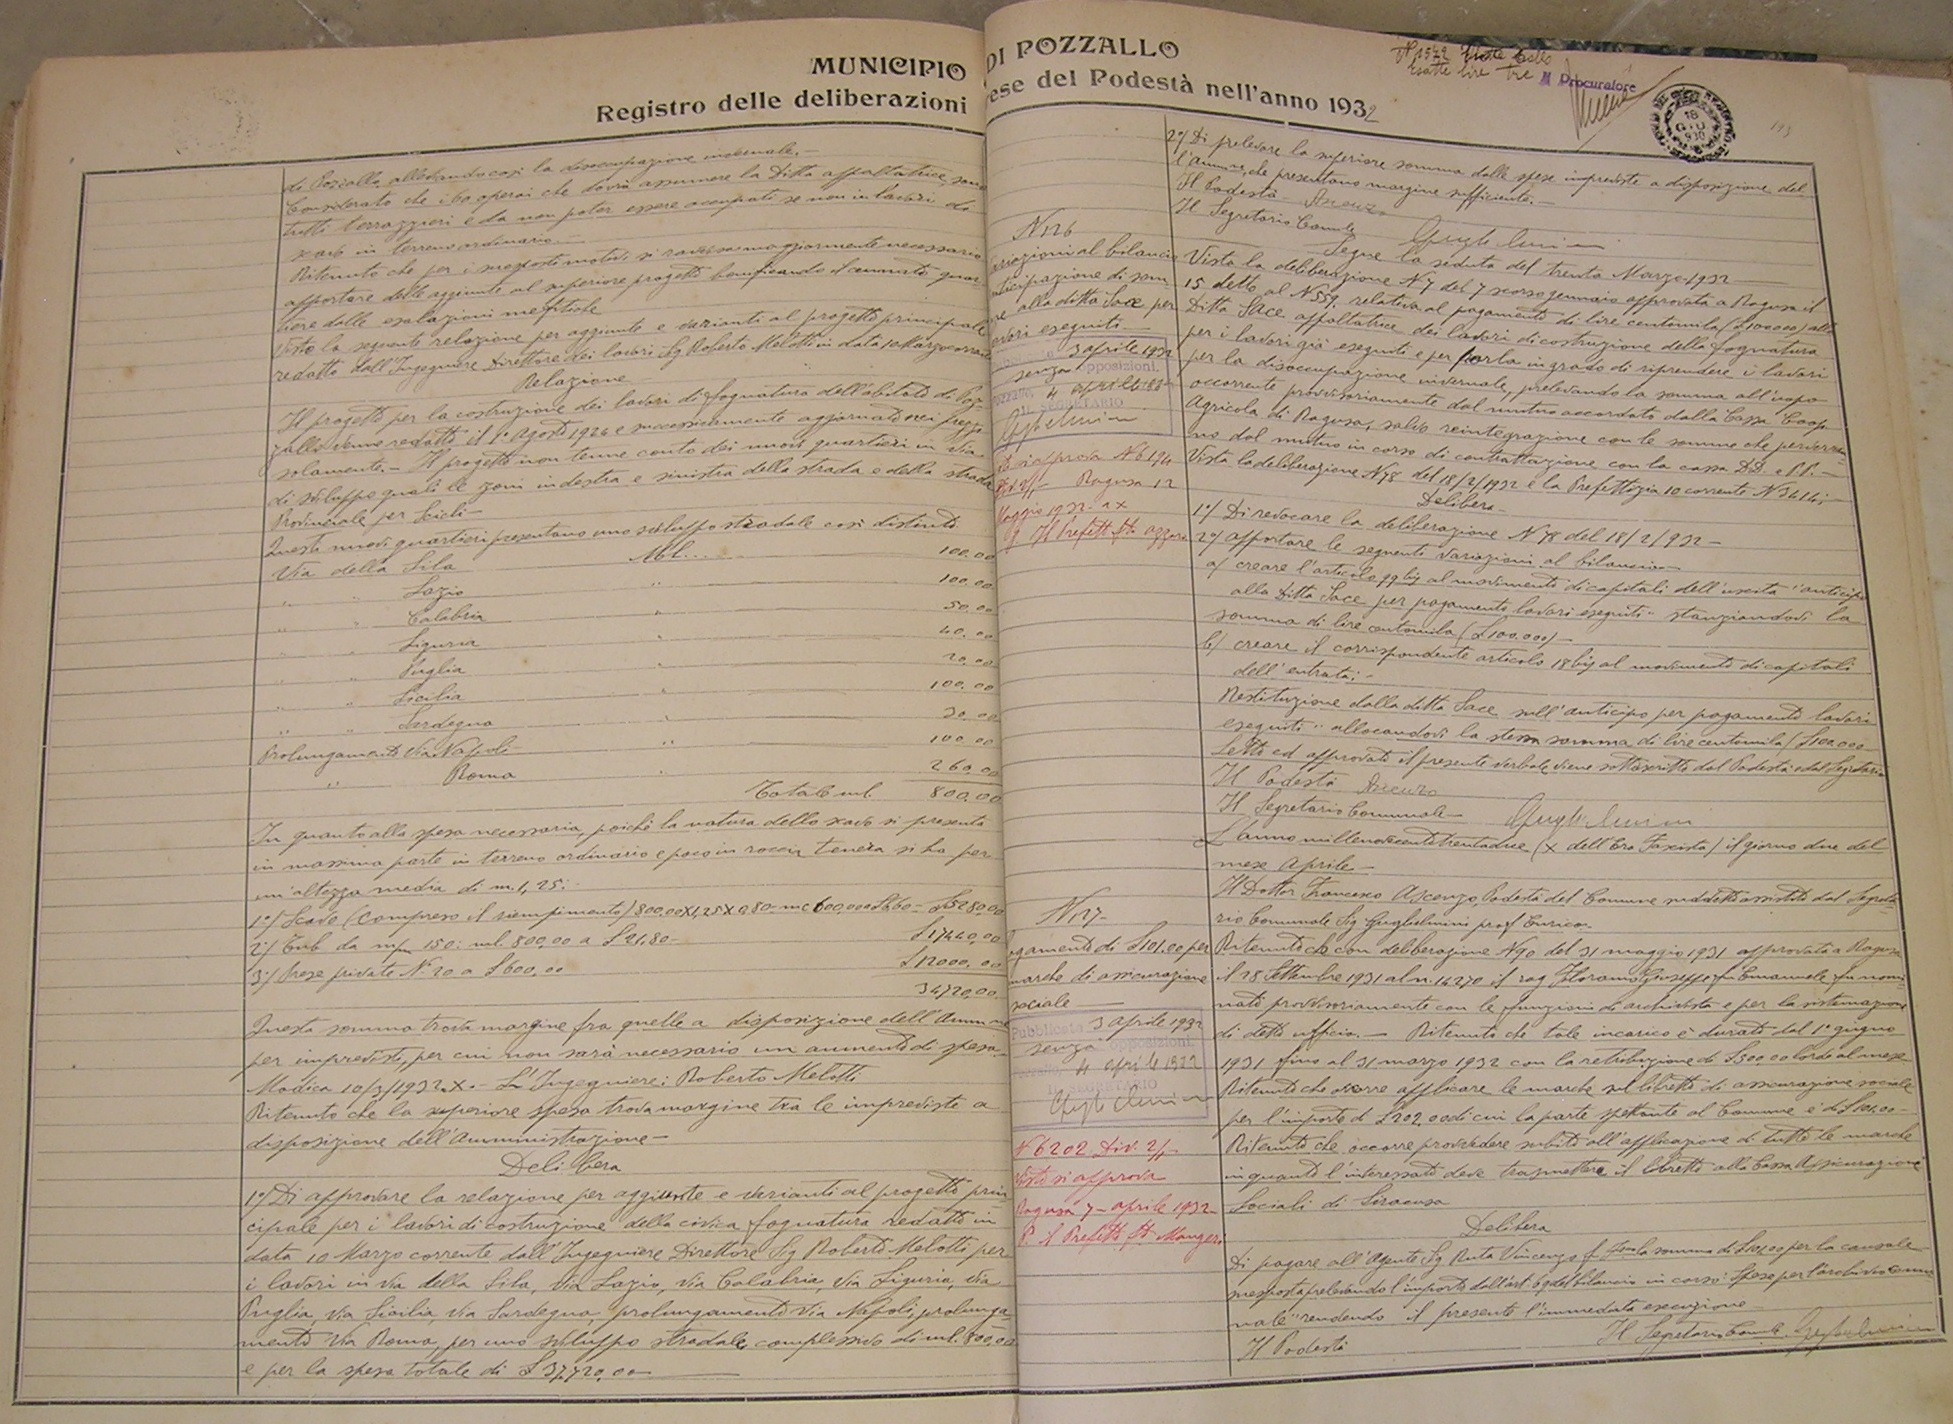 MUNICIPIO DI POZZALLO
Registro delle deliberazioni
ese del Podestà nell'anno 1932
Il Procuratore
193
di Pozzallo allevando così la disoccupazione invernale.-
Considerato che i 60 operai che dovrà assumere la Ditta appaltatrice sono
tutti terrazzieri e da non poter essere occupati se non in lavori di
scavo in terreno ordinario.-
Ritenuto che per i suesposti motivi si ravvisa maggiormente necessario
apportare delle aggiunte al superiore progetto bonificando il cennato quar-
tiere dalle esalazioni mefitiche
Vista la seguente relazione per aggiunte e varianti al progetto principale
redatta dall'Ingegnere Direttore dei lavori Sig Roberto Melotti in data 10 Marzo corrente
Relazione
Il progetto per la costruzione dei lavori di fognatura dell'abitato di Poz-
zallo venne redatto il 1° Agosto 1926 e successivamente aggiornato nei prezzi
solamente.- Il progetto non tenne conto dei nuovi quartieri in via
di sviluppo quali le zone in destra e sinistra della strada e della strada
Provinciale per Scicli-
Questi nuovi quartieri presentano uno sviluppo stradale così distinto
Via della Sila Ml.... 100.00
" " Lazio " 100.00
" " Calabria " 50.00
" " Liguria " 40.00
" " Puglia " 20.00
" " Sicilia " 100.00
" " Sardegna " 30.00
Prolungamento Via Napoli " 100.00
" Roma " 260.00
Totale ml. 800.00
In quanto alla spesa necessaria, poichè la natura dello scavo si presenta
in massima parte in terreno ordinario e poco in roccia tenera si ha per
un'altezza media di m. 1,25:-
1°/ Scavo (compreso il riempimento) 800,00X1,25X0,80= mc 600,00 a £ 6,60= £ 5280,00
2°/ Tub da m/m 150: ml. 800,00 a £ 21,80- £ 17440,00
3°/ Prese private N. 20 a £ 600,00 £ 12000,00
34720,00
Questa somma trova margine fra quelle a disposizione dell'Amm.ne
per imprevisti, per cui non sarà necessario un aumento di spesa.-
Modica 10/3/1932.X.- L'Ingegniere: Roberto Melotti
Ritenuto che la superiore spesa trova margine tra le impreviste a
disposizione dell'Amministrazione-
Delibera
1°/ Di approvare la relazione per aggiunte e varianti al progetto prin-
cipale per i lavori di costruzione della civica fognatura redatto in
data 10 Marzo corrente dall'Ingegnere Direttore Sig Roberto Melotti per
i lavori in via della Sila, Via Lazio, Via Calabria, Via Liguria, Via
Puglia, Via Sicilia, Via Sardegna, prolungamento Via Napoli, prolunga-
mento Via Roma, per uno sviluppo stradale complessivo di ml. 800,00
e per la spesa totale di £ 37,720,00
2°/ Di prelevare la superiore somma dalle spese impreviste a disposizione del-
l'Amm.ne, che presentano margine sufficiente.-
Il Podestà
Il Segretario Com.le
Segue la seduta del trenta Marzo 1932
N. 26
ariazioni al bilancio
nticipazione di som
alla ditta Sace per
avori eseguiti
3 aprile 1932
senza opposizioni.
4 aprile 1932
IL SEGRETARIO
si approva N 6194
Ragusa 12
Maggio 1932. a X
P. Il Prefetto
Vista la deliberazione N 7 del 7 scorso gennaio approvata a Ragusa il
15 detto al N 559, relativa al pagamento di lire centomila (£ 100000) alla
Ditta SAce appaltatrice dei lavori di costruzione della fognatura
per i lavori già eseguiti e per porla in grado di riprendere i lavori
per la disoccupazione invernale, prelevando la somma all'uopo
occorrente provvisoriamente dal mutuo accordato dalla Cassa Coop
Agricola di Ragusa, salvo reintegrazione con le somme che perverran-
no dal mutuo in corso di contrattazione con la cassa DD. e PP.-
Vista la deliberazione N 78 del 18/2/1932 e la Prefettizia 10 corrente N 3414;-
Delibera-
1°/ Di revocare la deliberazione N 78 del 18/2/932-
2°/ apportare le seguenti variazioni al bilancio-
a/ creare l'articolo 99 bis al movimento di capitali dell'uscita "anticipo
alla Ditta Sace per pagamento lavori eseguiti" stanziandovi la
somma di lire centomila (£ 100.000)-
b/ creare il corrispondente articolo 18 bis al movimento di capitali
dell'entrata:-
Restituzione dalla ditta Sace sull'anticipo per pagamento lavori
eseguiti" allocandovi la stessa somma di lire centomila (£ 100.000
Letto ed approvato il presente verbale viene sottoscritto dal Podestà e dal Segretario
Il Podestà
Il Segretario Comunale-
L'anno millenovecentotrentadue (X dell'Era Fascista) il giorno due del
mese Aprile-
Il Dottor Francesco Ascenzo Podestà del Comune suddetto assistito dal Segreta-
rio Comunale Sig Guglielmini prof Enrico
N. 27-
agamento di £ 101.00 per
marche di assicurazione
sociale
Pubblicata 3 aprile 1932
senza opposizioni.
4 aprile 1932
IL SEGRETARIO
N 6202 Div. 2/1
Visto si approva
Ragusa 7- aprile 1932
P. il Prefetto
Ritenuto che con deliberazione N 90 del 31 maggio 1931 approvata a Ragusa
il 28 Settembre 1931 al n. 14270 il rag Floramo Giuseppe fu Emanuele fu nomi-
nato provvisoriamente con le funzioni di archivista e per la sistemazione
di detto ufficio.- Ritenuto che tale incarico è durato dal 1° giugno
1931 fino al 31 marzo 1932 con la retribuzione di £ 500,00 lorde al mese
Ritenuto che occorre applicare le marche sul libretto di assicurazione sociale
per l'importo di £ 202,00 di cui la parte spettante al Comune è di £ 101.00-
Ritenuto che occorre provvedere subito all'applicazione di tutte le marche
in quanto l'interessato deve trasmettere il libretto alla Cassa Assicurazioni
Sociali di Siracusa
Delibera
Di pagare all'Agente Sig Ruta Vincenzo la somma di £ 101.00 per la causale
suesposta prelevando l'importo dall'art. 69 del bilancio in corso: Spese per l'archivio comu
nale" rendendo il presente l'immediata esecuzione
Il Podestà Il Segretario Com.le